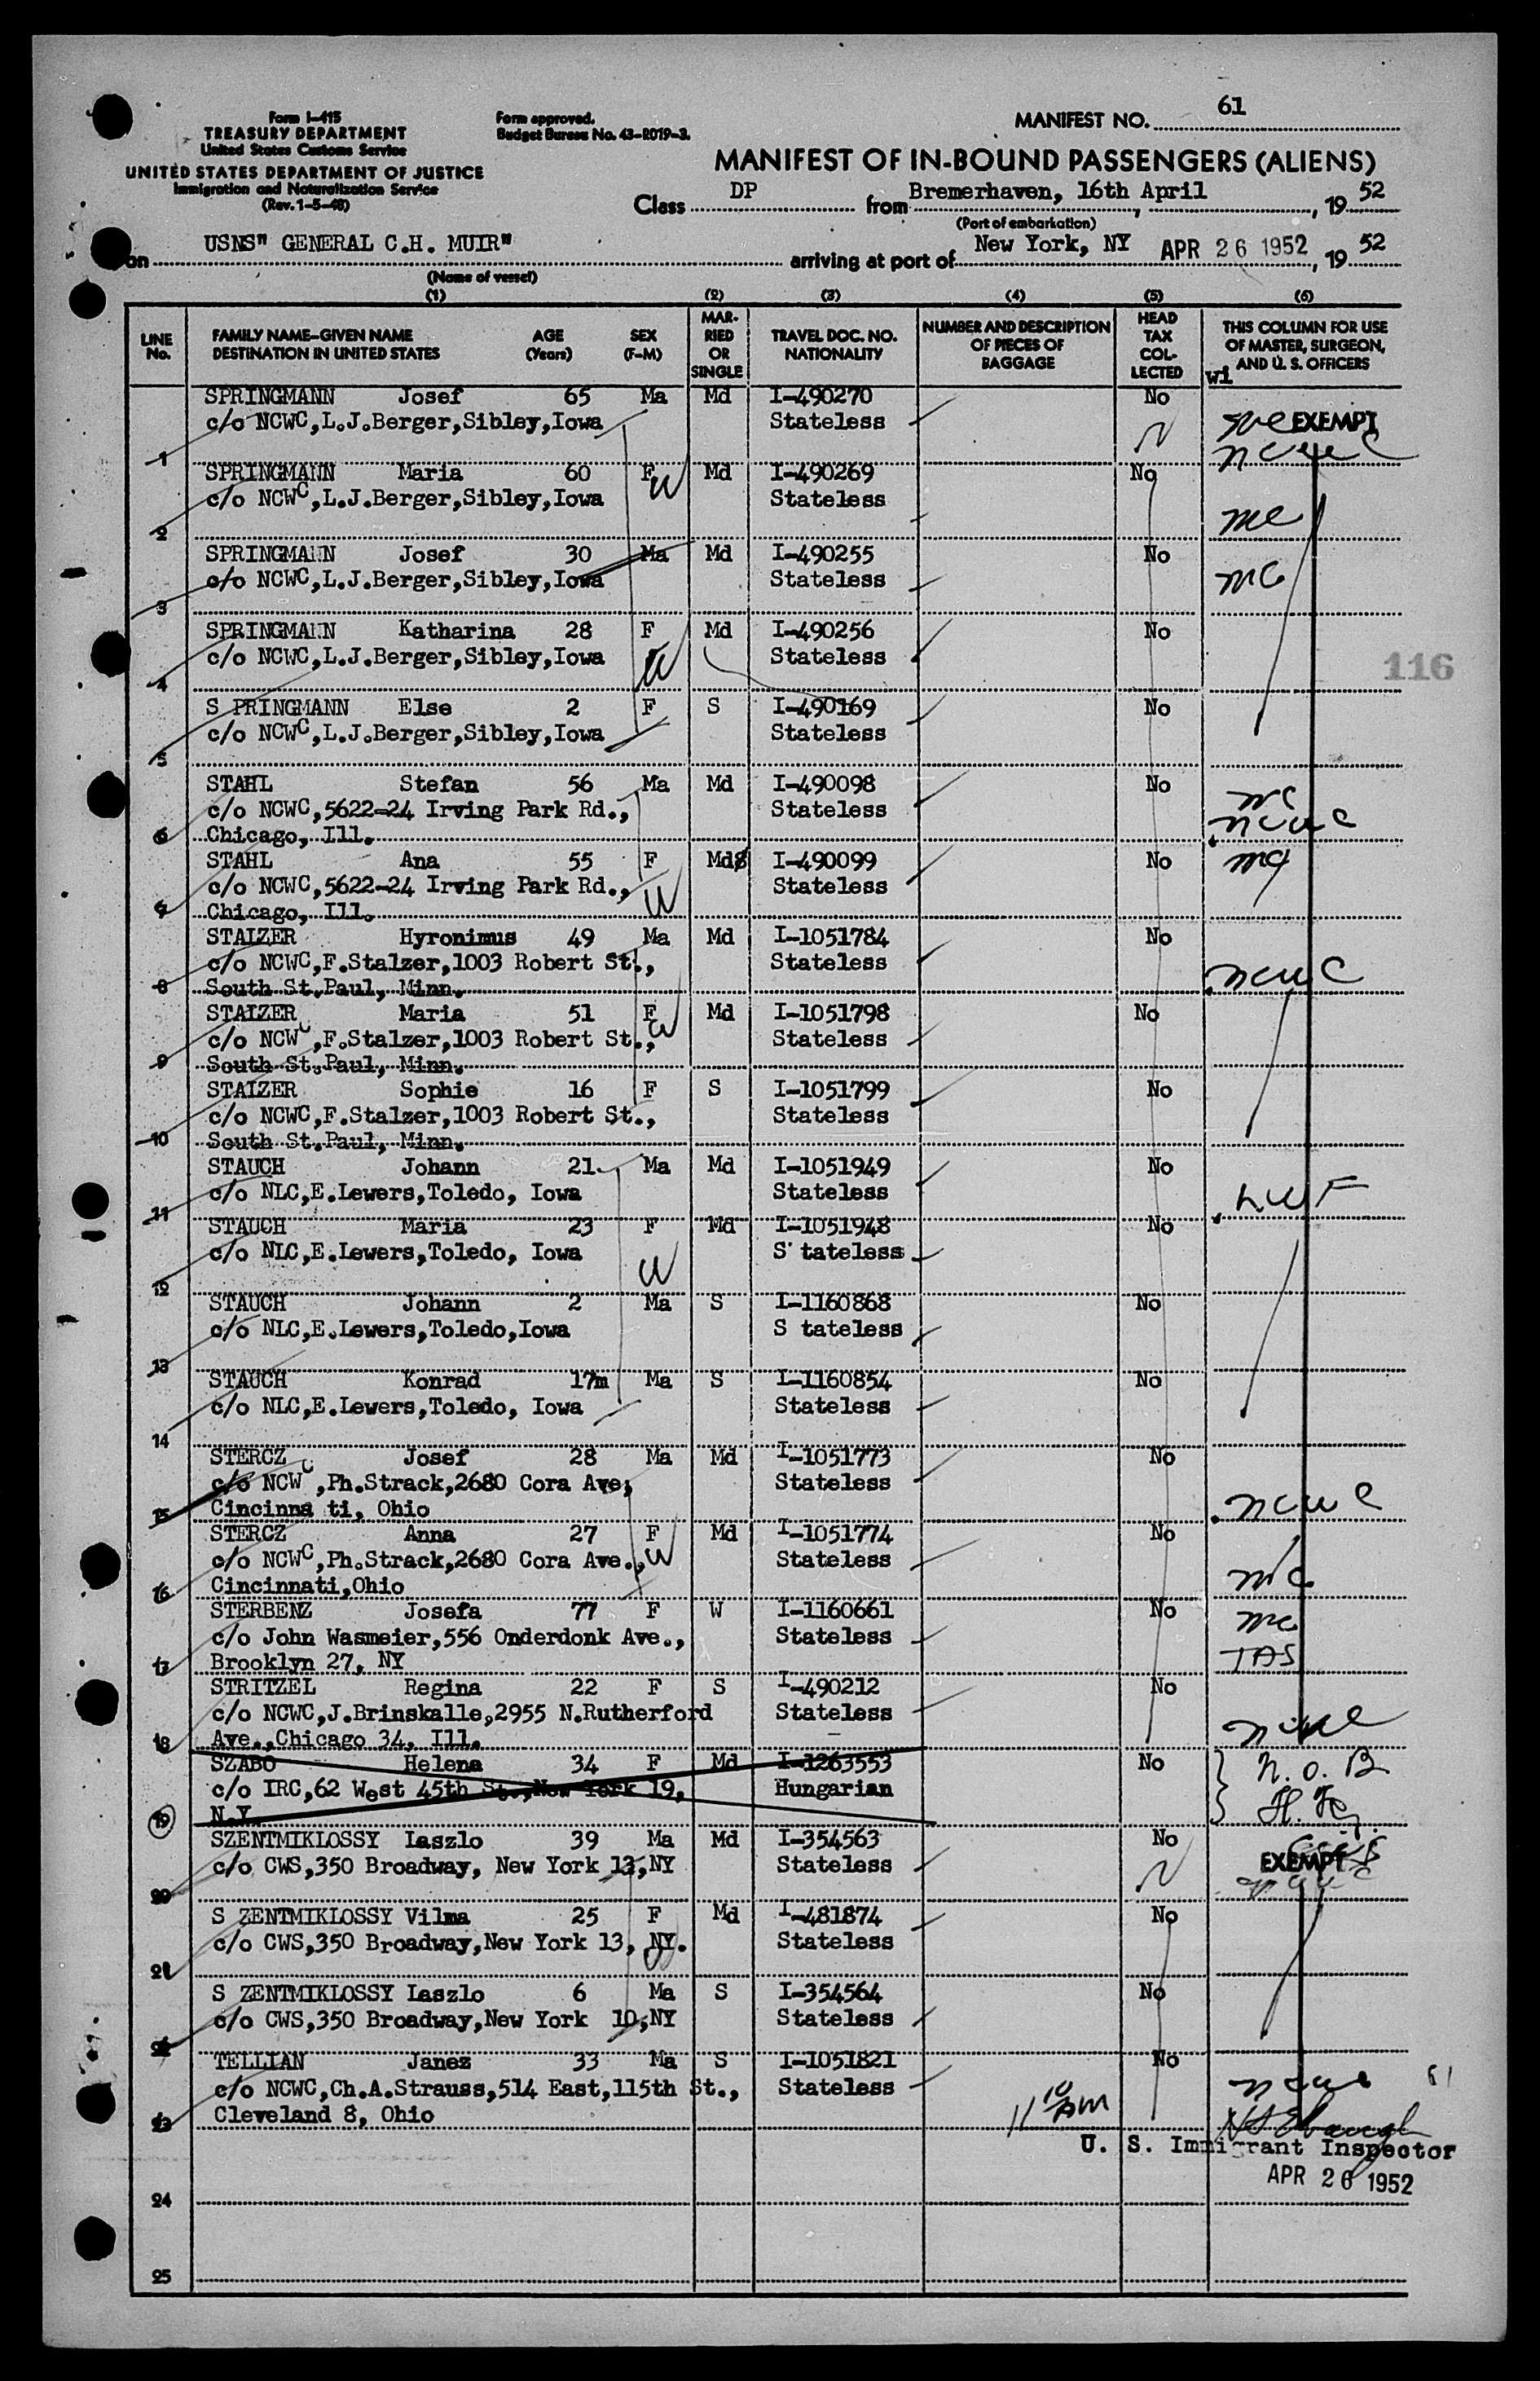 Form I-415
TREASURY DEPARTMENT
United States Customs Service
UNITED STATES DEPARTMENT OF JUSTICE
Immigration and Naturalization Service
(Rev. 1-5-48)
Form approved.
Budget Bureau No. 43-R019-3.
MANIFEST NO. 61
MANIFEST OF IN-BOUND PASSENGERS (ALIENS)
Class DP from Bremerhaven, 16th April, 19 52
(Port of embarkation)
on USNS" GENERAL C.H. MUIR" arriving at port of New York, NY APR 26 1952, 19 52
(Name of vessel)
(1) (2) (3) (4) (5) (6)
LINE No. FAMILY NAME-GIVEN NAME DESTINATION IN UNITED STATES AGE (Years) SEX (F-M) MARRIED OR SINGLE TRAVEL DOC. NO. NATIONALITY NUMBER AND DESCRIPTION OF PIECES OF BAGGAGE HEAD TAX COLLECTED THIS COLUMN FOR USE OF MASTER, SURGEON, AND U. S. OFFICERS
SPRINGMANN Josef 65 Ma Md I-490270 No
c/o NCWC,L.J.Berger,Sibley,Iowa Stateless EXEMPT
1
SPRINGMANN Maria 60 F Md I-490269 No
c/o NCWC,L.J.Berger,Sibley,Iowa Stateless
2 mc
SPRINGMANN Josef 30 Ma Md I-490255 No
c/o NCWC,L.J.Berger,Sibley,Iowa Stateless mc
3
SPRINGMANN Katharina 28 F Md I-490256 No
c/o NCWC,L.J.Berger,Sibley,Iowa Stateless
4
116
S PRINGMANN Else 2 F S I-490169 No
c/o NCWC,L.J.Berger,Sibley,Iowa Stateless
5
STAHL Stefan 56 Ma Md I-490098 No
c/o NCWC,5622-24 Irving Park Rd., Stateless mc
6 Chicago, Ill. ncwc
STAHL Ana 55 F Md I-490099 No
c/o NCWC,5622-24 Irving Park Rd., Stateless
7 Chicago, Ill.
STALZER Hyronimus 49 Ma Md I-1051784 No
c/o NCWC,F.Stalzer,1003 Robert St., Stateless
8 South St.Paul, Minn. ncwc
STALZER Maria 51 F Md I-1051798 No
c/o NCWC,F.Stalzer,1003 Robert St., Stateless
9 South St.Paul, Minn.
STALZER Sophie 16 F S I-1051799 No
c/o NCWC,F.Stalzer,1003 Robert St., Stateless
10 South St.Paul, Minn.
STAUCH Johann 21 Ma Md I-1051949 No
c/o NLC,E.Lewers,Toledo, Iowa Stateless LWF
11
STAUCH Maria 23 F Md I-1051948 No
c/o NLC,E.Lewers,Toledo, Iowa S tateless
12
STAUCH Johann 2 Ma S I-1160868 No
c/o NLC,E.Lewers,Toledo,Iowa S tateless
13
STAUCH Konrad 17m Ma S I-1160854 No
c/o NLC,E.Lewers,Toledo, Iowa Stateless
14
STERCZ Josef 28 Ma Md I-1051773 No
c/o NCWC,Ph.Strack,2680 Cora Ave, Stateless
15 Cincinna ti, Ohio ncwc
STERCZ Anna 27 F Md I-1051774 No
c/o NCWC,Ph.Strack,2680 Cora Ave., Stateless
16 Cincinnati,Ohio mc
STERBENZ Josefa 77 F W I-1160661 No
c/o John Wasmeier,556 Onderdonk Ave., Stateless mc
17 Brooklyn 27, NY TAS
STRITZEL Regina 22 F S I-490212 No
c/o NCWC,J.Brinskalle,2955 N.Rutherford Stateless
18 Ave.,Chicago 34, Ill.
SZABO Helena 34 F Md I-1263553 No N.O.B
c/o IRC,62 West 45th St.,New York 19, Hungarian
19 N.Y.
SZENTMIKLOSSY Laszlo 39 Ma Md I-354563 No
c/o CWS,350 Broadway, New York 13,NY Stateless EXEMPT
20
S ZENTMIKLOSSY Vilma 25 F Md I-481874 No
c/o CWS,350 Broadway,New York 13, NY. Stateless
21
S ZENTMIKLOSSY Laszlo 6 Ma S I-354564 No
c/o CWS,350 Broadway,New York 10,NY Stateless
22
TELLIAN Janez 33 Ma S I-1051821 No
c/o NCWC,Ch.A.Strauss,514 East,115th St., Stateless
23 Cleveland 8, Ohio 11 10 AM
U. S. Immigrant Inspector
APR 26 1952
24
25